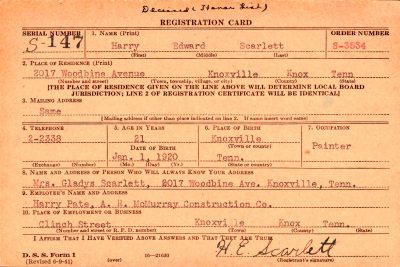 Deceased (Honor List)
REGISTRATION CARD
SERIAL NUMBER 1. NAME (Print) ORDER NUMBER
S-147 Harry Edward Scarlett S-3534
(First) (Middle) (Last)
2. PLACE OF RESIDENCE (Print)
2017 Woodbine Avenue Knoxville, Knox Tenn
(Number and street) (Town, township, village, or city) (County) (State)
[THE PLACE OF RESIDENCE GIVEN ON THE LINE ABOVE WILL DETERMINE LOCAL BOARD
JURISDICTION; LINE 2 OF REGISTRATION CERTIFICATE WILL BE IDENTICAL]
3. MAILING ADDRESS
Same
[Mailing address if other than place indicated on line 2. If same insert word same]
4. TELEPHONE 5. AGE IN YEARS 6. PLACE OF BIRTH 7. OCCUPATION
2-2338 21 Knoxville Painter
DATE OF BIRTH (Town or county)
Jan. 1, 1920 Tenn.
(Exchange) (Number) (Mo.) (Day) (Yr.) (State or country)
8. NAME AND ADDRESS OF PERSON WHO WILL ALWAYS KNOW YOUR ADDRESS
Mrs. Gladys Scarlett, 2017 Woodbine Ave. Knoxville, Tenn.
9. EMPLOYER'S NAME AND ADDRESS
Harry Pate, A. H. McMurray Construction Co.
10. PLACE OF EMPLOYMENT OR BUSINESS
Clinch Street Knoxville Knox Tenn
(Number and street or R. F. D. number) (Town) (County) (State)
I AFFIRM THAT I HAVE VERIFIED ABOVE ANSWERS AND THAT THEY ARE TRUE.
H. E. Scarlett
D. S. S. Form 1 16—21630
(Revised 6-9-41) (over) (Registrant's signature)